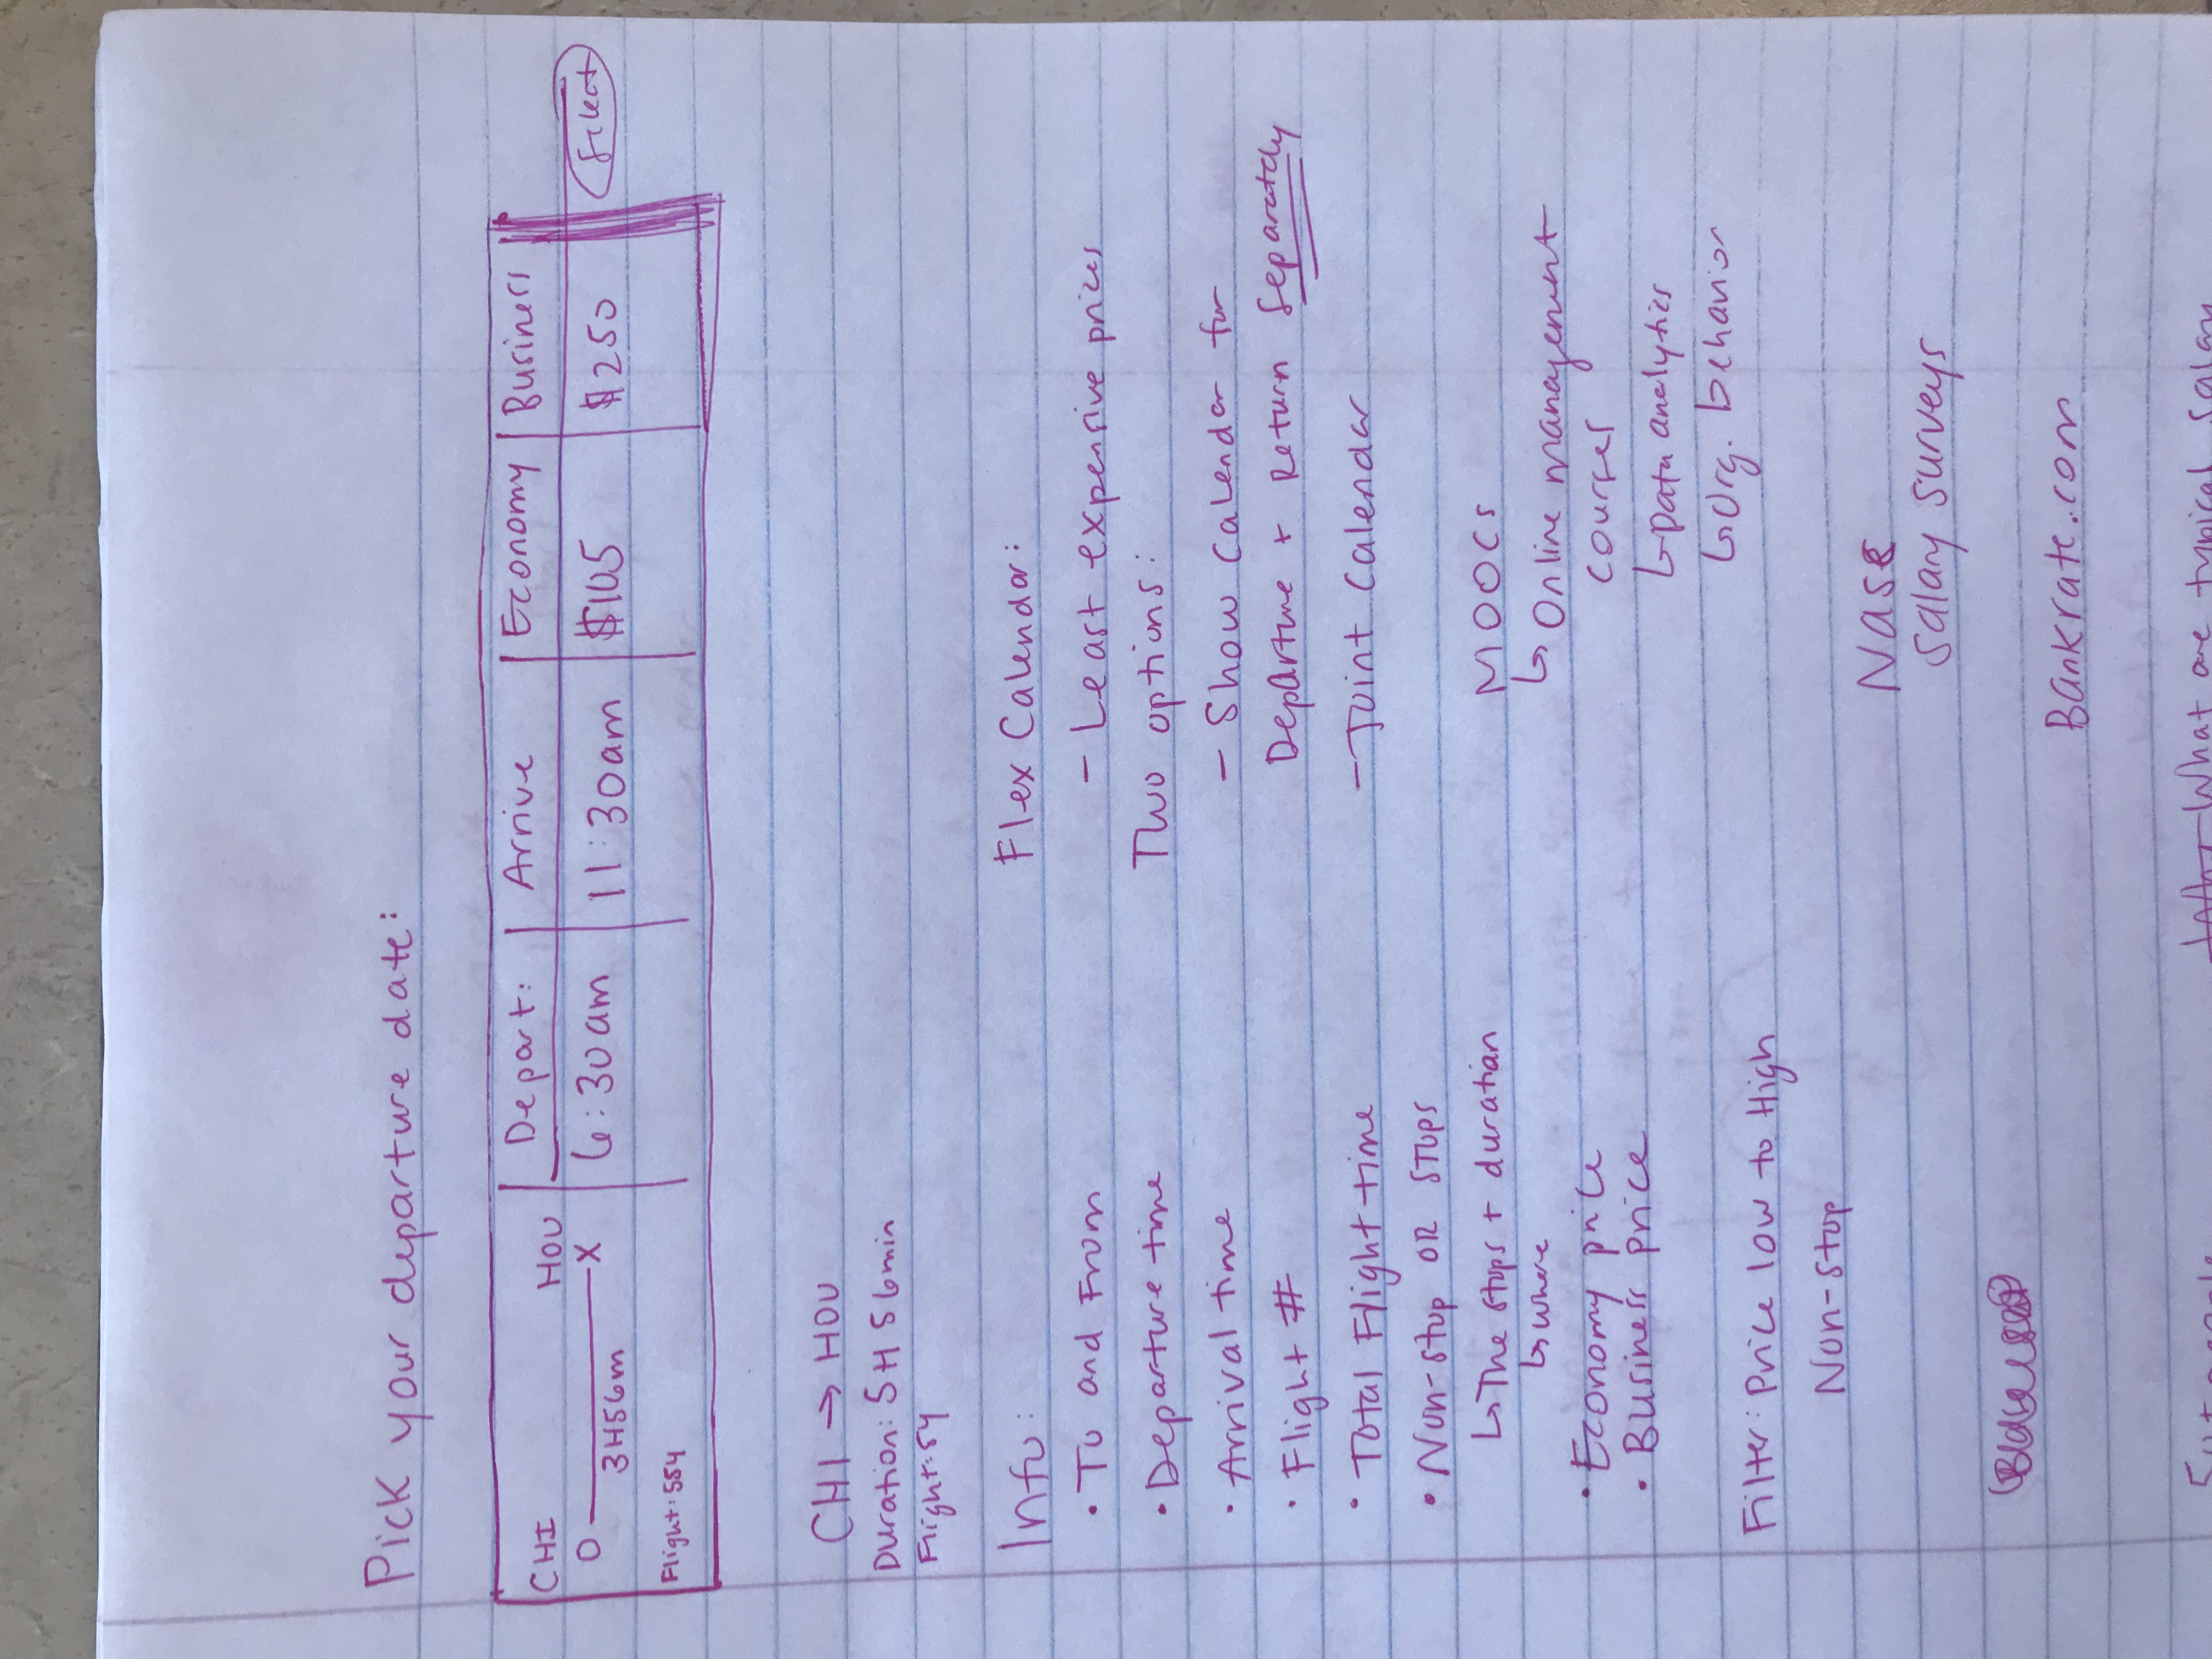 Pick your departure date:
CHI HOU Depart: Arrive Economy Business
O X 6:30am 11:30am $105 $250 Select
3H56m
Flight: 554
CHI → HOU
Duration: 5H 56min
Flight: 54
Info:
• To and From
• Departure time
• Arrival time
• Flight #
• Total Flight time
• Non-stop OR STOPS
↳ The stops + duration
↳ where
• Economy price
• Business price
Filter: Price low to High
Non-stop
Flex Calendar:
- Least expensive prices
Two options:
- Show Calendar for
Departure + Return Separately
- Joint Calendar
MOOCs
↳ Online management
courses
↳ Data analytics
↳ Org. behavior
Salary surveys
Bankrate.com
What are typical salary